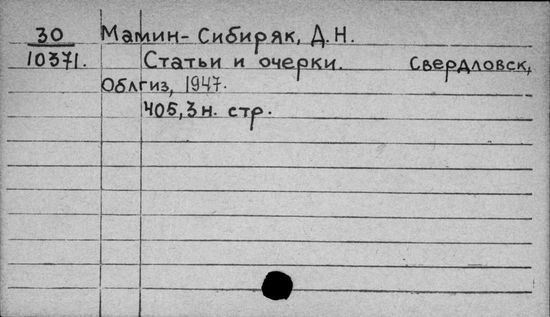 30 Мамин-Сибиряк, Д.Н.
10371. Статьи и очерки. Свердловск,
Облгиз, 1947.
405,3 н. стр.